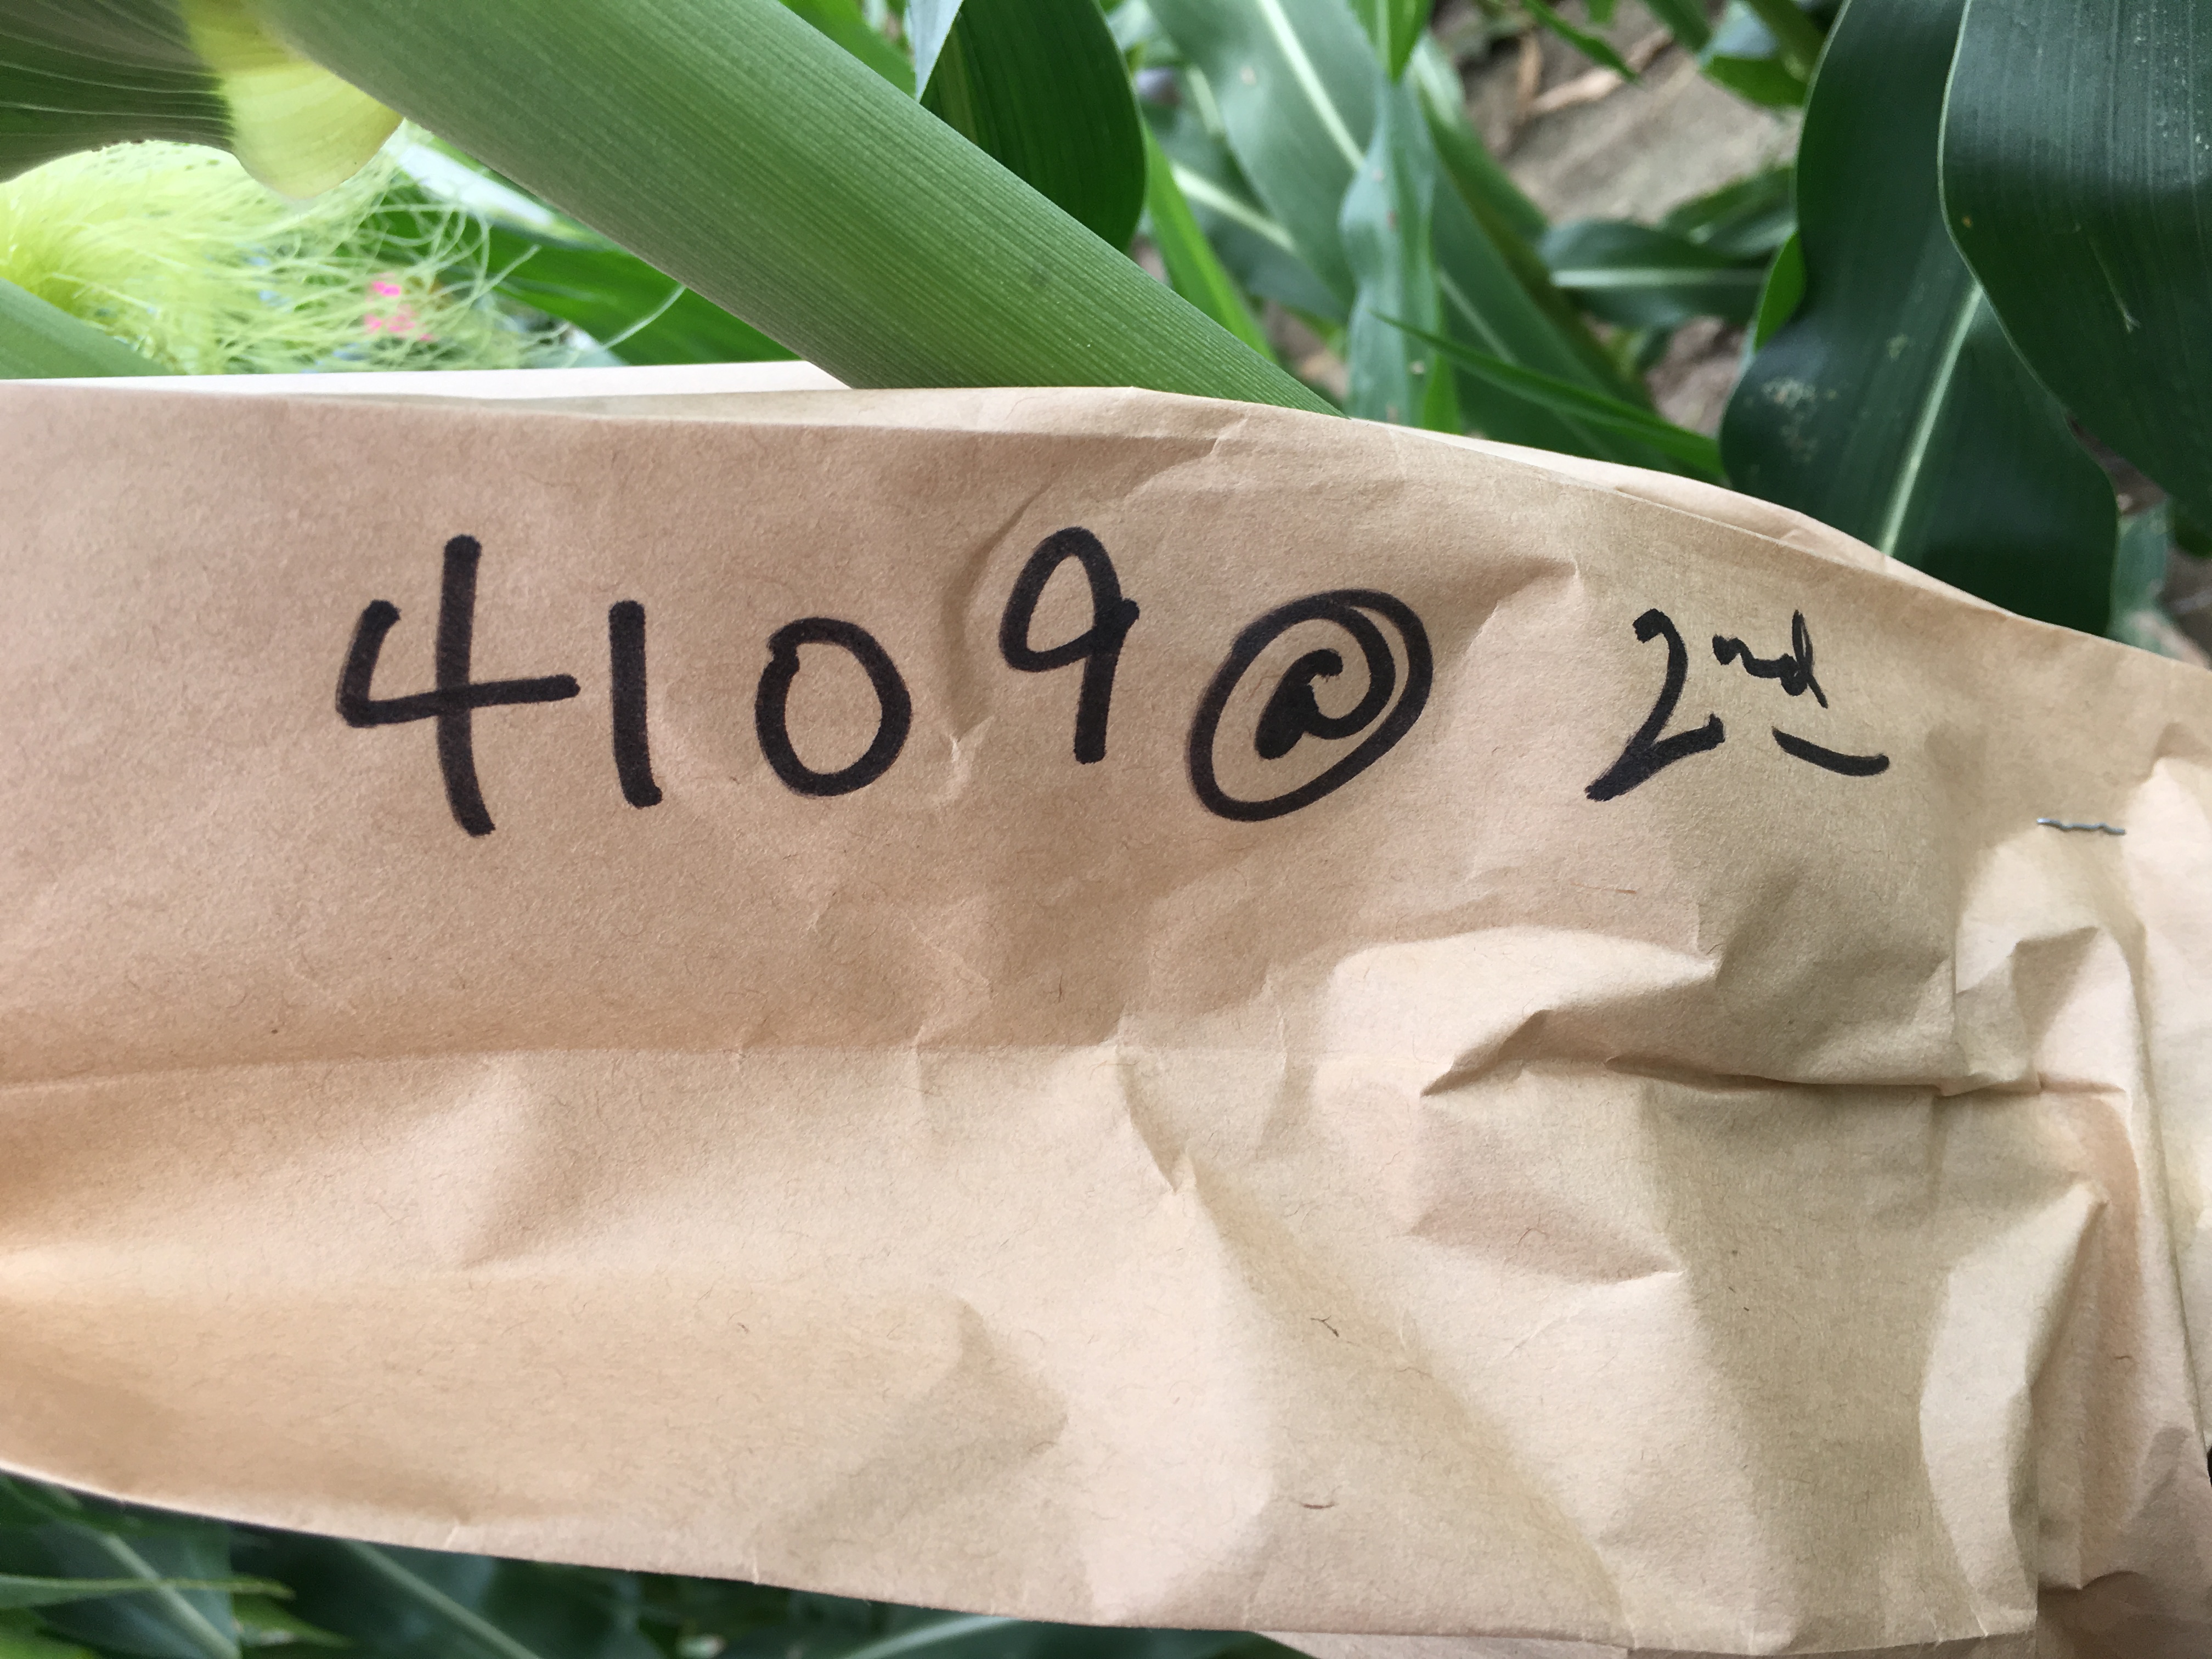 4109@ 2nd